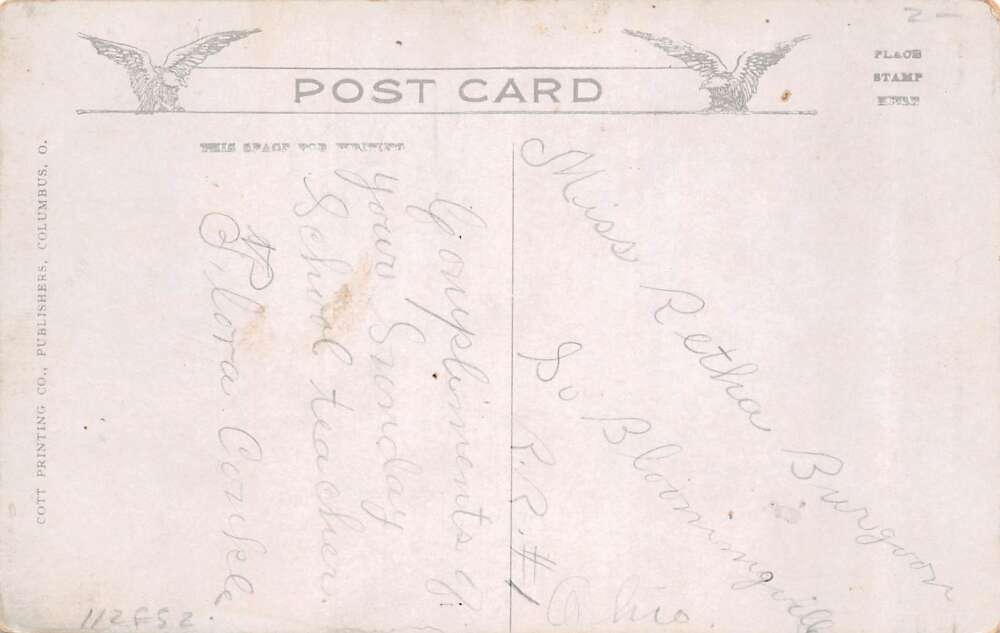 2-
PLACE
STAMP
HERE
POST CARD
THIS SPACE FOR WRITING
COTT PRINTING CO., PUBLISHERS, COLUMBUS, O.
Compliments of
your Sunday
School teacher.
Flora
Miss Retha Burgoon
So Bloomingville
R.R. #1
Ohio.
112552.